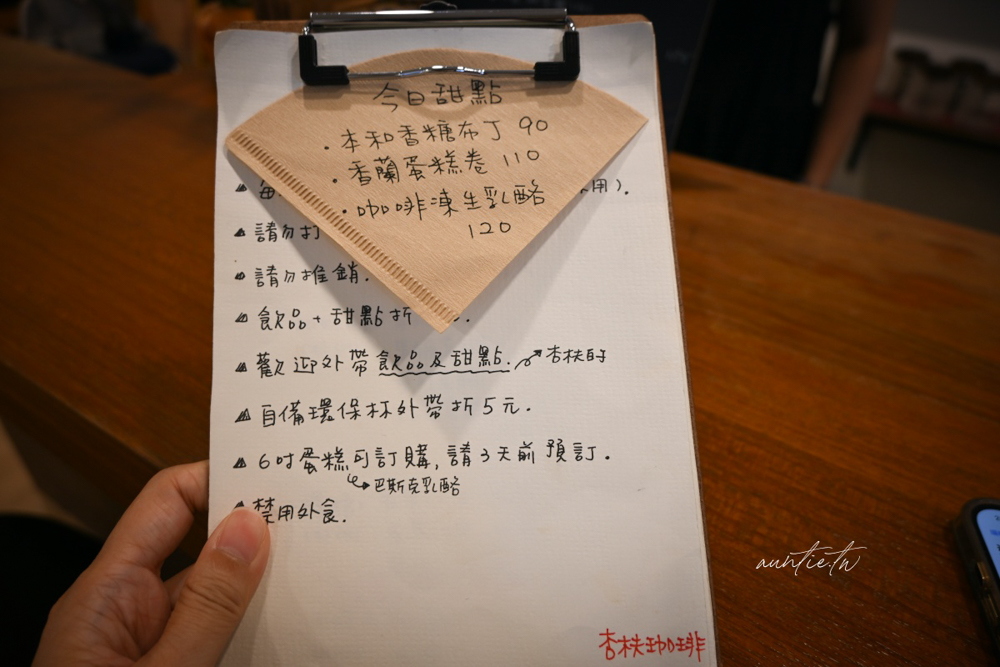 今日甜點
・本和香糖布丁 90
・香蘭蛋糕卷 110
・咖啡凍生乳酪
120
每 用).
請勿打
請勿推銷.
飲品+甜點折
歡迎外帶飲品及甜點. 杏杕的
自備環保杯外帶折5元.
6吋蛋糕可訂購, 請3天前預訂.
巴斯克乳酪
禁用外食.
杏杕珈琲
auntie.tw